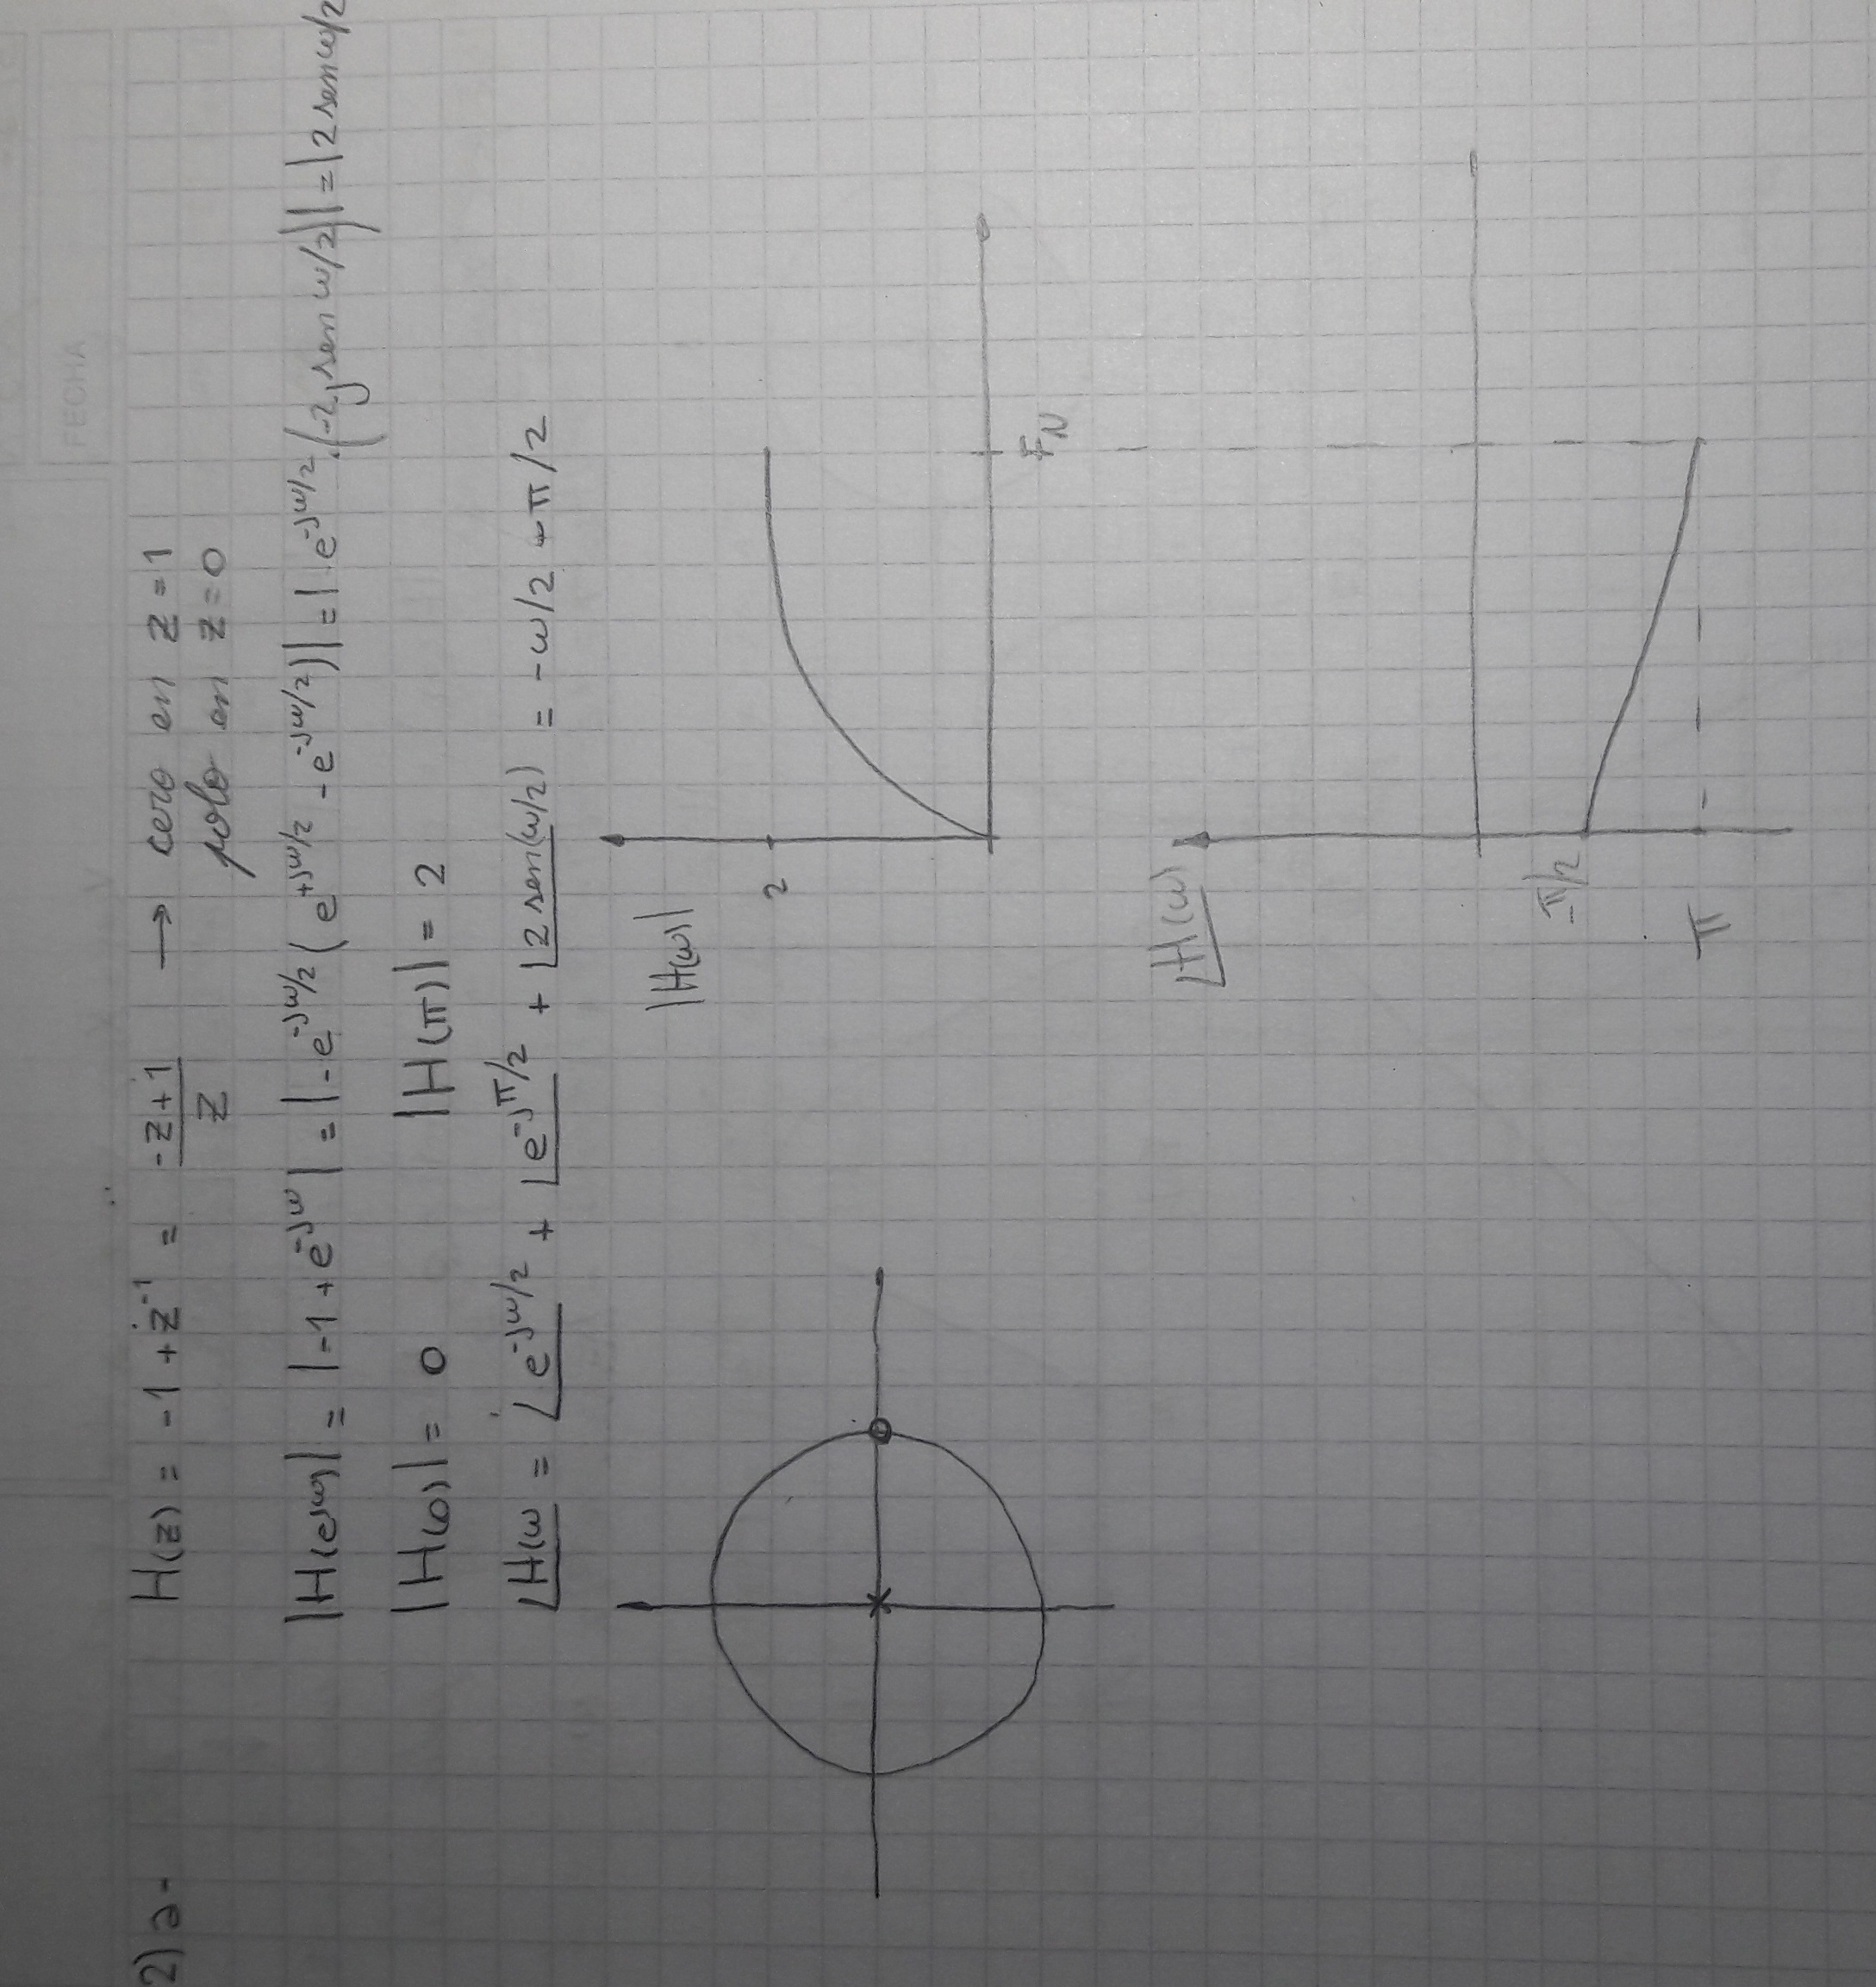 FECHA
2) a- H(z) = -1 + z⁻¹ = (-z+1)/z → cero en z = 1
polo en z = 0
|H(ejω)| = |-1 + e^-jω| = |-e^-jω/2 (e^+jω/2 - e^-jω/2)| = |e^-jω/2 . (-2j sen ω/2)| = |2 sen ω/2
|H(0)| = 0 |H(π)| = 2
∠H(ω = ∠e^-jω/2 + ∠e^-jπ/2 + ∠2 sen(ω/2) = -ω/2 - π/2
|H(ω)|
2
F_N
∠H(ω)
-π/2
π